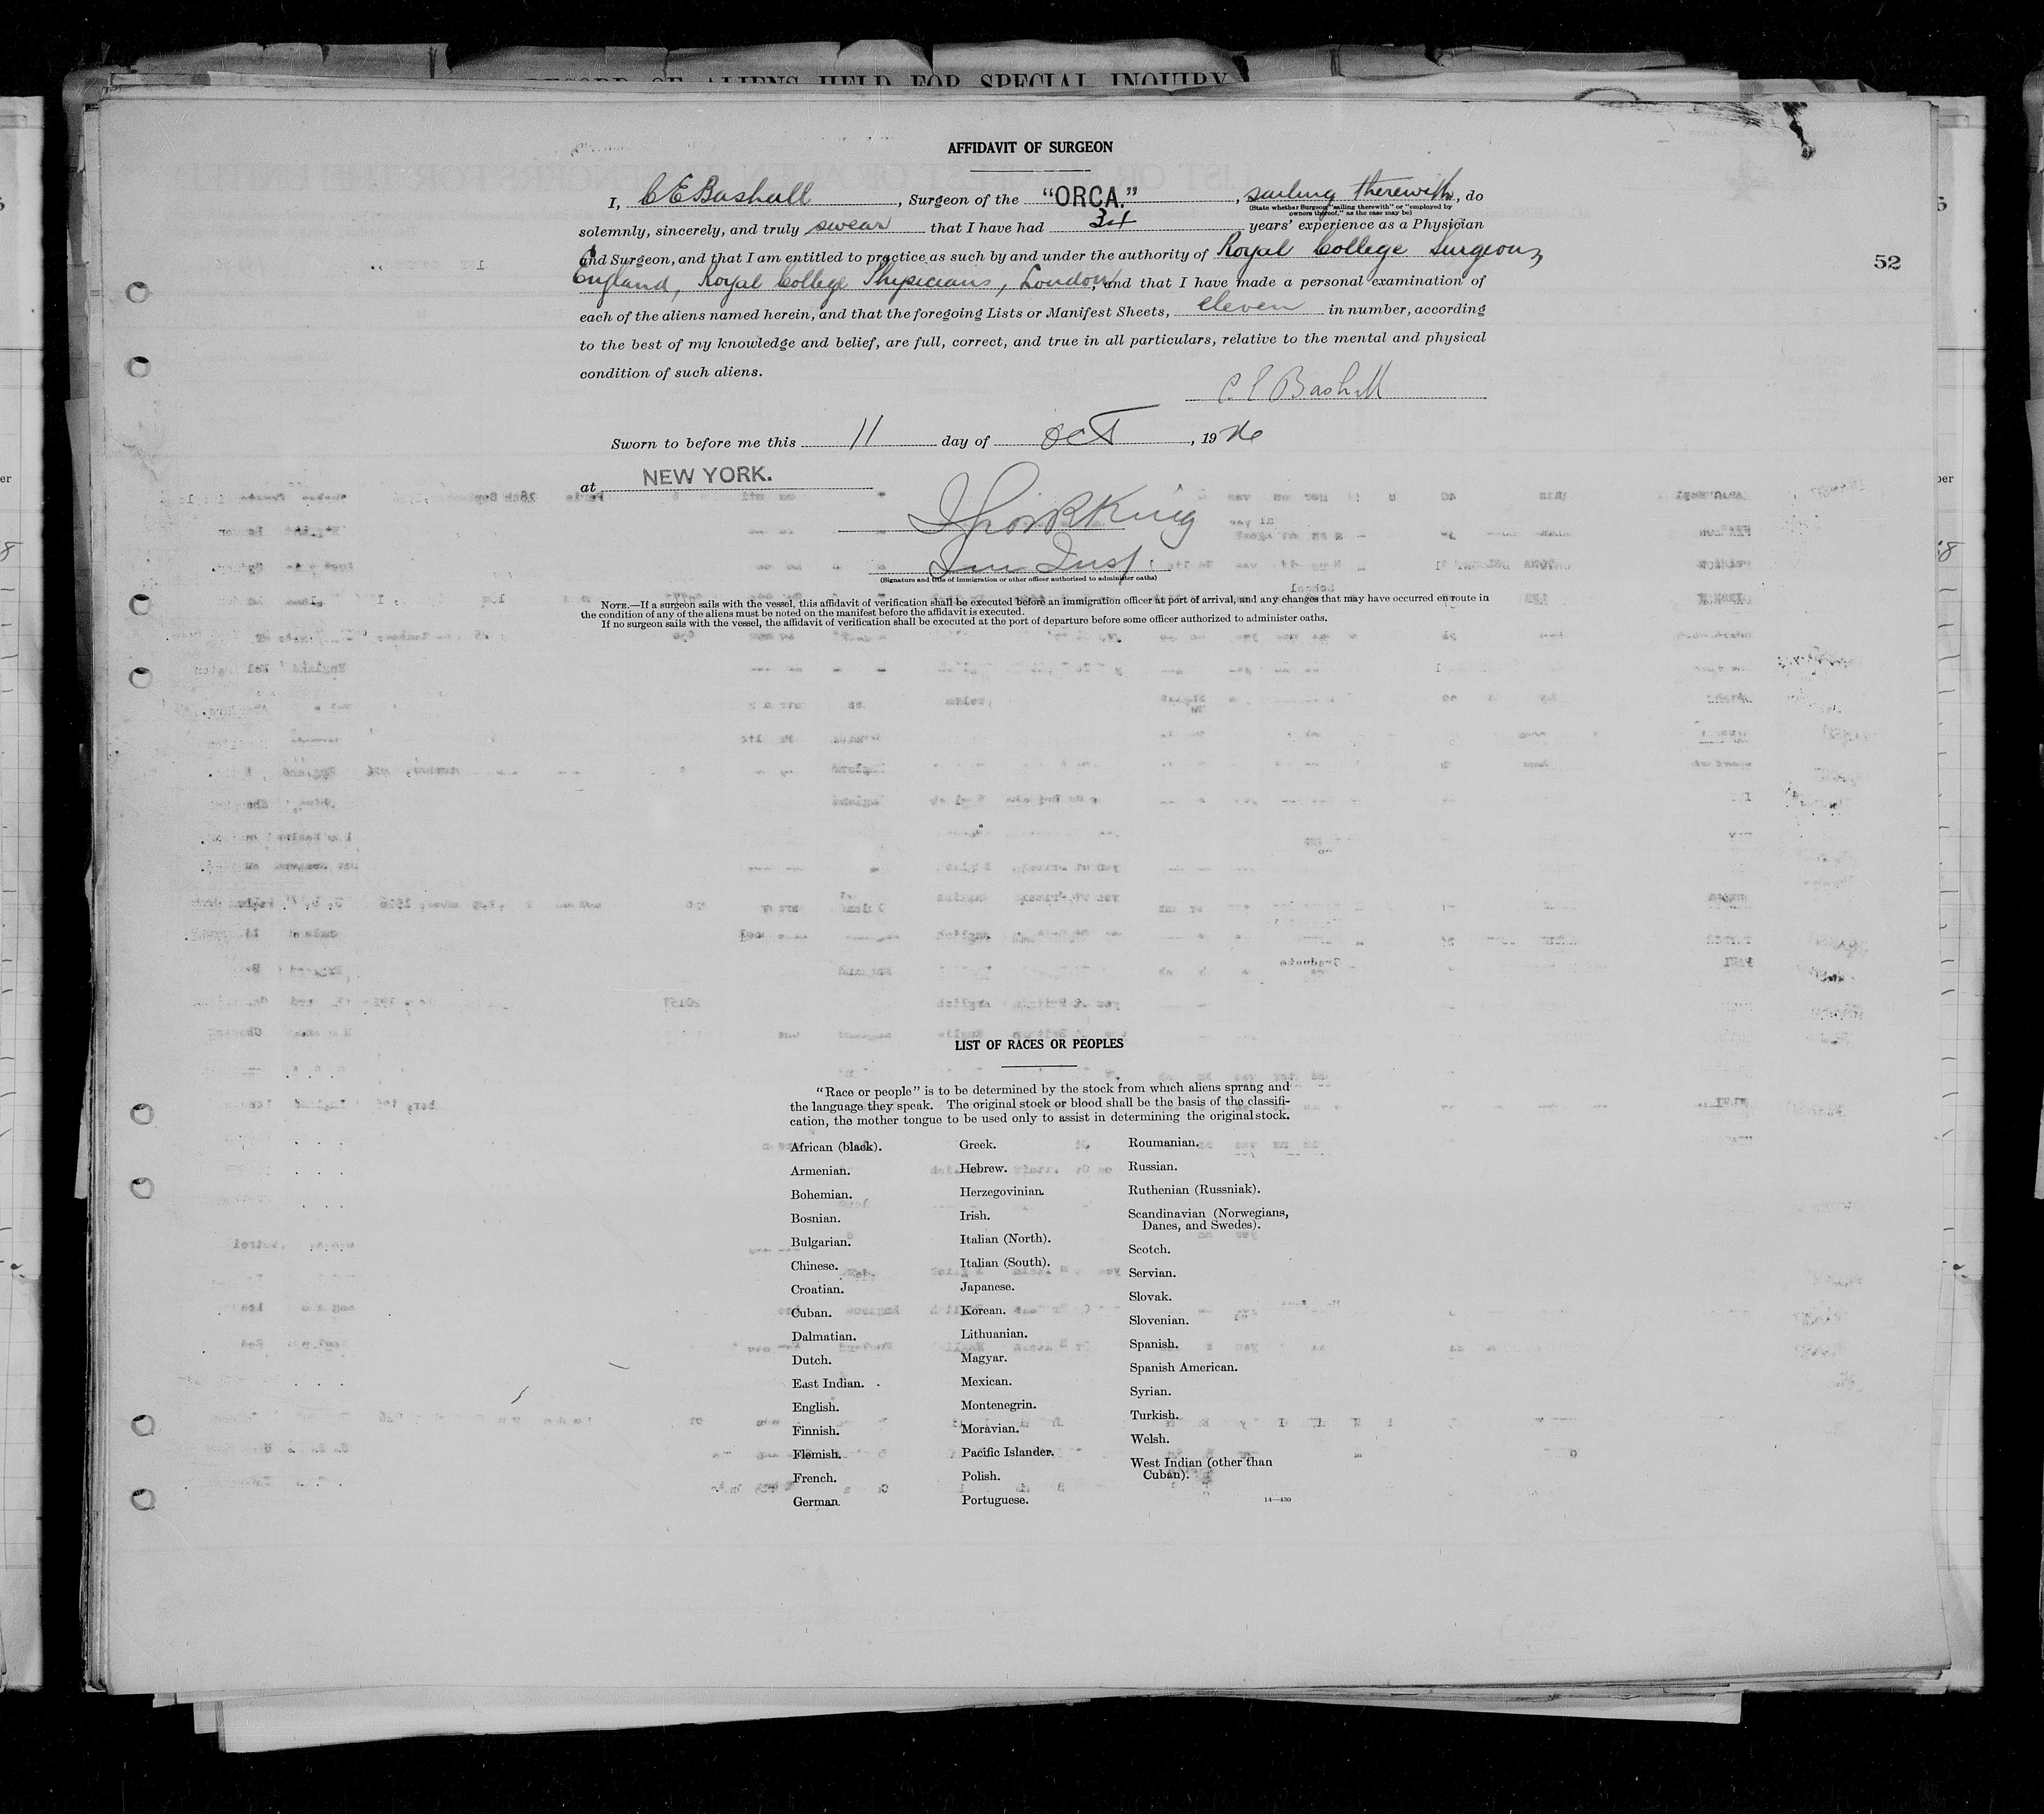 RECORD OF ALIENS HELD FOR SPECIAL INQUIRY
AFFIDAVIT OF SURGEON
I, C E Bashall, Surgeon of the "ORCA.", sailing therewith, do
(State whether Surgeon "sailing therewith" or "employed by
owners thereof," as the case may be)
solemnly, sincerely, and truly swear that I have had 34 years' experience as a Physician
and Surgeon, and that I am entitled to practice as such by and under the authority of Royal College Surgeons
England, Royal College Physicians, London, and that I have made a personal examination of
52
each of the aliens named herein, and that the foregoing Lists or Manifest Sheets, eleven in number, according
to the best of my knowledge and belief, are full, correct, and true in all particulars, relative to the mental and physical
condition of such aliens.
C E Bashall
Sworn to before me this 11 day of Oct, 1926
at NEW YORK.
King
Imm Insp.
(Signature and title of immigration or other officer authorized to administer oaths)
NOTE.—If a surgeon sails with the vessel, this affidavit of verification shall be executed before an immigration officer at port of arrival, and any changes that may have occurred en route in
the condition of any of the aliens must be noted on the manifest before the affidavit is executed.
If no surgeon sails with the vessel, the affidavit of verification shall be executed at the port of departure before some officer authorized to administer oaths.
LIST OF RACES OR PEOPLES
"Race or people" is to be determined by the stock from which aliens sprang and
the language they speak. The original stock or blood shall be the basis of the classifi-
cation, the mother tongue to be used only to assist in determining the original stock.
African (black).
Armenian.
Bohemian.
Bosnian.
Bulgarian.
Chinese.
Croatian.
Cuban.
Dalmatian.
Dutch.
East Indian.
English.
Finnish.
Flemish.
French.
German.
Greek.
Hebrew.
Herzegovinian.
Irish.
Italian (North).
Italian (South).
Japanese.
Korean.
Lithuanian.
Magyar.
Mexican.
Montenegrin.
Moravian.
Pacific Islander.
Polish.
Portuguese.
Roumanian.
Russian.
Ruthenian (Russniak).
Scandinavian (Norwegians,
Danes, and Swedes).
Scotch.
Servian.
Slovak.
Slovenian.
Spanish.
Spanish American.
Syrian.
Turkish.
Welsh.
West Indian (other than
Cuban).
14—430